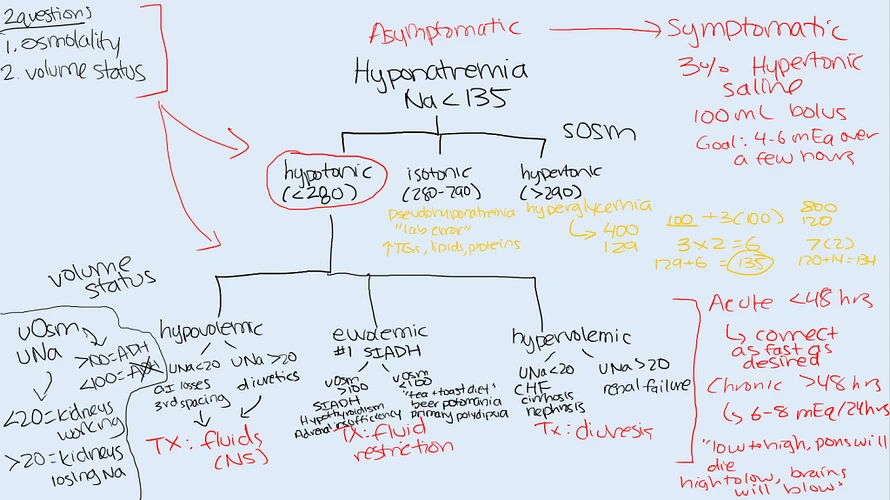 2 questions
1. osmolality
2. volume status
Asymptomatic
Symptomatic
Hyponatremia
Na < 135
3% Hypertonic
saline
100 mL bolus
Goal: 4-6 mEq over
a few hours
sosm
hypotonic
(<280)
isotonic
(280-290)
hypertonic
(>290)
Pseudohyponatremia
"lab error"
↑TGs, lipids, proteins
hyperglycemia
400
129
100 + 3(100)
3 x 2 = 6
129 + 6 = 135
800
120
7(2)
120+14=134
volume
status
uOsm
UNa
>100=ADH
<100=ADH
<20=kidneys
working
>20=kidneys
losing Na
hypovolemic
UNa<20
GI losses
3rd spacing
UNa >20
diuretics
Tx: fluids
(NS)
euvolemic
#1 SIADH
uosm
>100
SIADH
Hypothyroidism
Adrenal insufficiency
uosm
<100
"tea + toast diet"
beer potomania
primary polydipsia
Tx: fluid
restriction
hypervolemic
UNa<20
CHF
cirrhosis
nephrosis
UNa >20
renal failure
Tx: diuresis
Acute <48 hrs
correct
as fast as
desired
Chronic >48 hrs
6-8 mEq/24hrs
"low to high, pons will
die
high to low, brains
will blow"